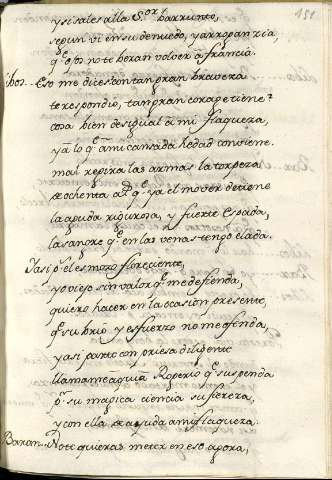 151
y si sales allà S.or barrunto,
segun vi en su denuedo, y arrogancia,
q.e ojos no te veran volver a francia.
Eso me dices con tan gran braveza
te respondiò, tan gran corage tiene?
cosa bien desigual a mi flaqueza,
ya lo q.e a mi cansada hedad conviene.
mal regira las armas la torpeza
de ochenta a.s q.e ya el mover detiene
la aguda rigurosa, y fuerte espada,
la sangre q.e en las venas tengo elada.
Y asi p.s el es mozo floreciente,
yo viejo sin valor q.e me defienda,
quiero hacer en la ocasion presente,
q.e su brio y esfuerzo no me ofenda,
y asi parte con priesa diligente
llamame aqui a Rogerio q.e suspenda
p.r su magica ciencia su fiereza,
y con ella de ayuda a mi flaqueza.
Baron.. No te quieras meter en eso agora,